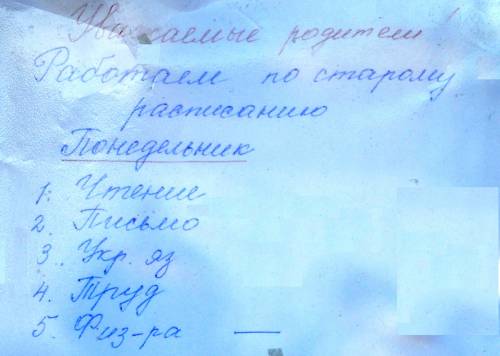 Уважаемые родители!
Работаем по старому
расписанию
Понедельник
1. Чтение
2. Письмо
3. Укр. яз
4. Труд
5. Физ-ра